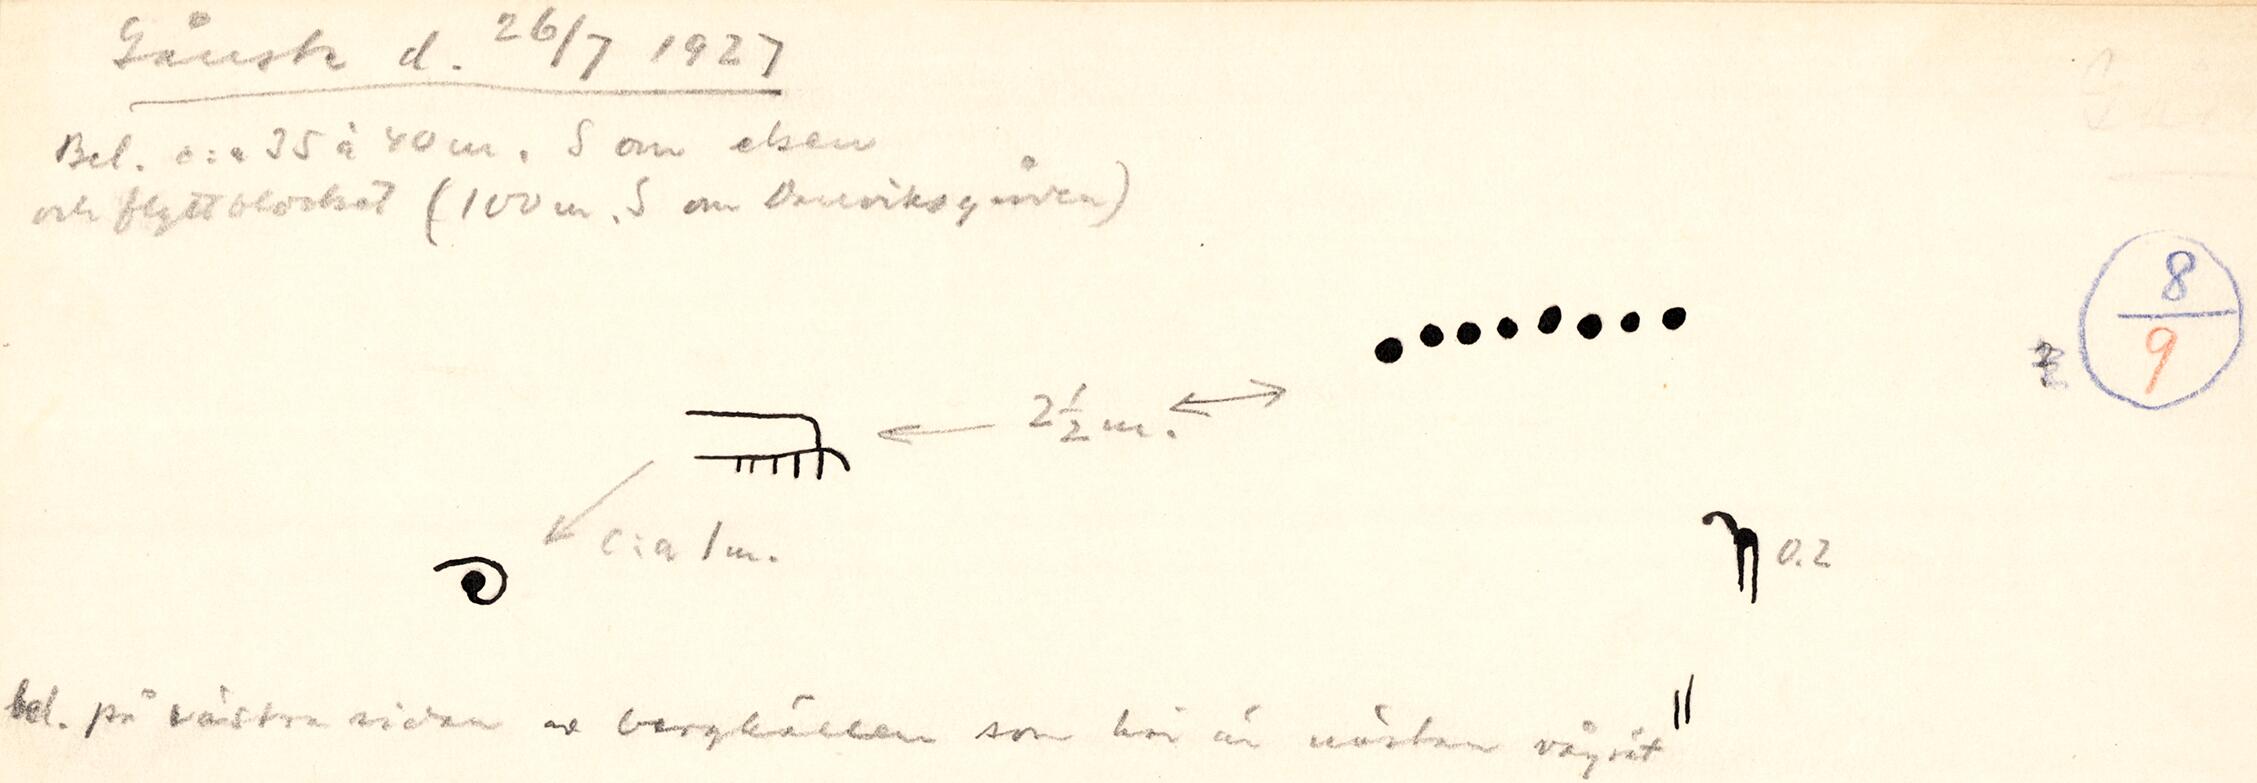 Gånsk d. 26/7 1927
Bel. c:a 35 à 40 m. S om eken
och flyttblocket (100 m. S om Donviksgården)
8
9
2 1/2 m.
c:a 1 m.
0.2
bel. på västra sidan av berghällen som här är nästan vågrät